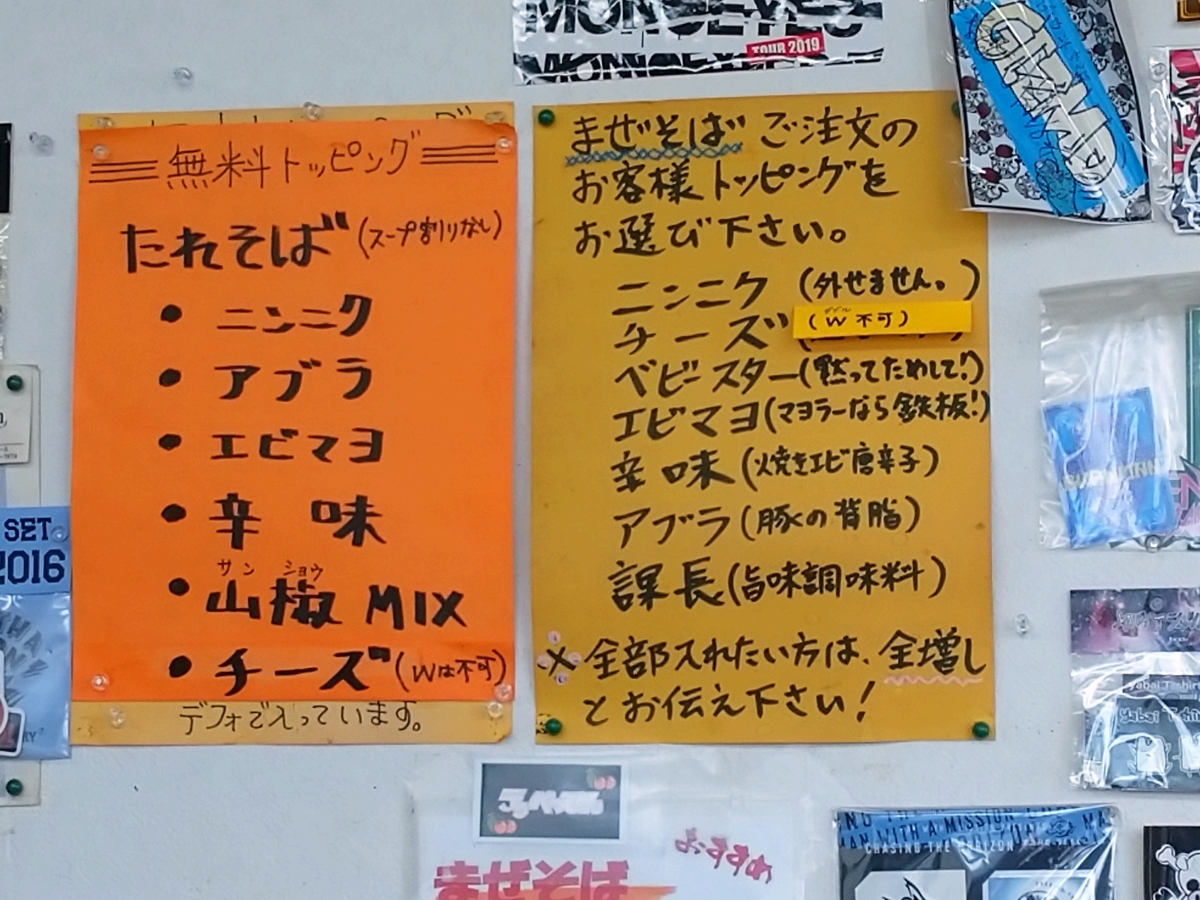 MONOEYES
TOUR 2019
無料トッピング
たれそば(スープ割りなし)
• ニンニク
• アブラ
• エビマヨ
• 辛味
サン ショウ
• 山椒 MIX
• チーズ(Wは不可)
デフォで入っています。
まぜそば ご注文の
お客様トッピングを
お選び下さい。
ニンニク (外せません。)
チーズ (W 不可)
ベビースター(黙ってためして!)
エビマヨ(マヨラーなら鉄板!)
辛味(焼きエビ唐辛子)
アブラ(豚の背脂)
課長(旨味調味料)
※全部入れたい方は、全増し
とお伝え下さい!
SET
2016
まぜそば
おすすめ
MAN WITH A MISSION
CHASING THE HORIZON
Yabai